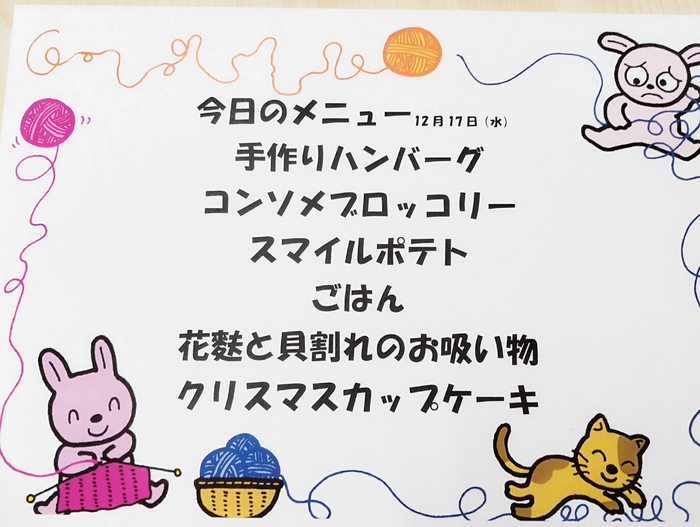 今日のメニュー12月17日（水）
手作りハンバーグ
コンソメブロッコリー
スマイルポテト
ごはん
花麩と貝割れのお吸い物
クリスマスカップケーキ